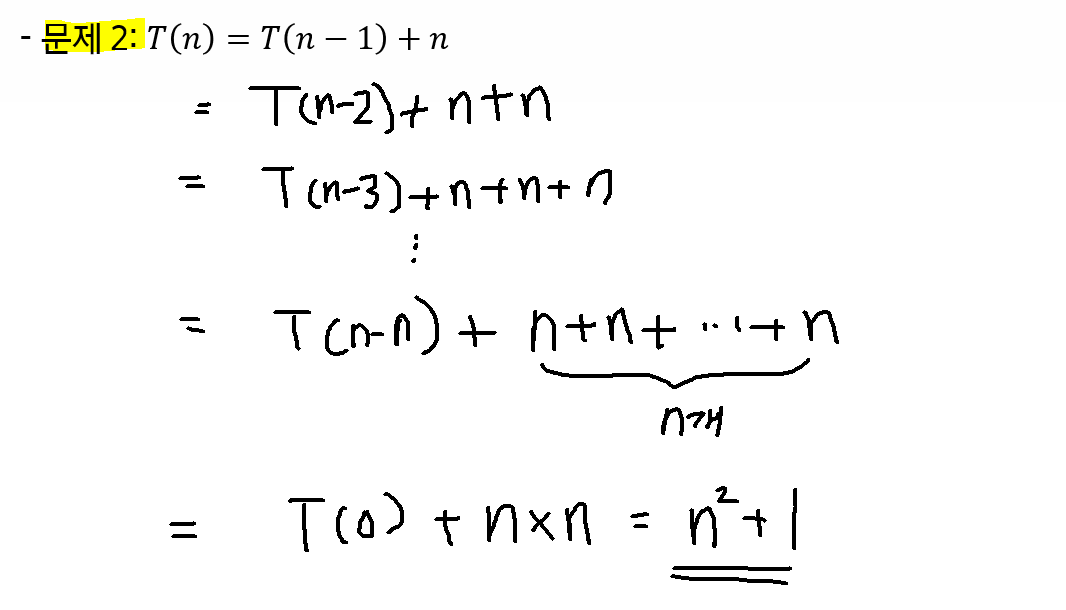 - 문제 2: T(n) = T(n − 1) + n
= T(n-2) + n+n
= T(n-3) + n+n+n
⋮
= T(n-n) + n+n+ ⋯ +n
n개
= T(0) + n×n = n²+1